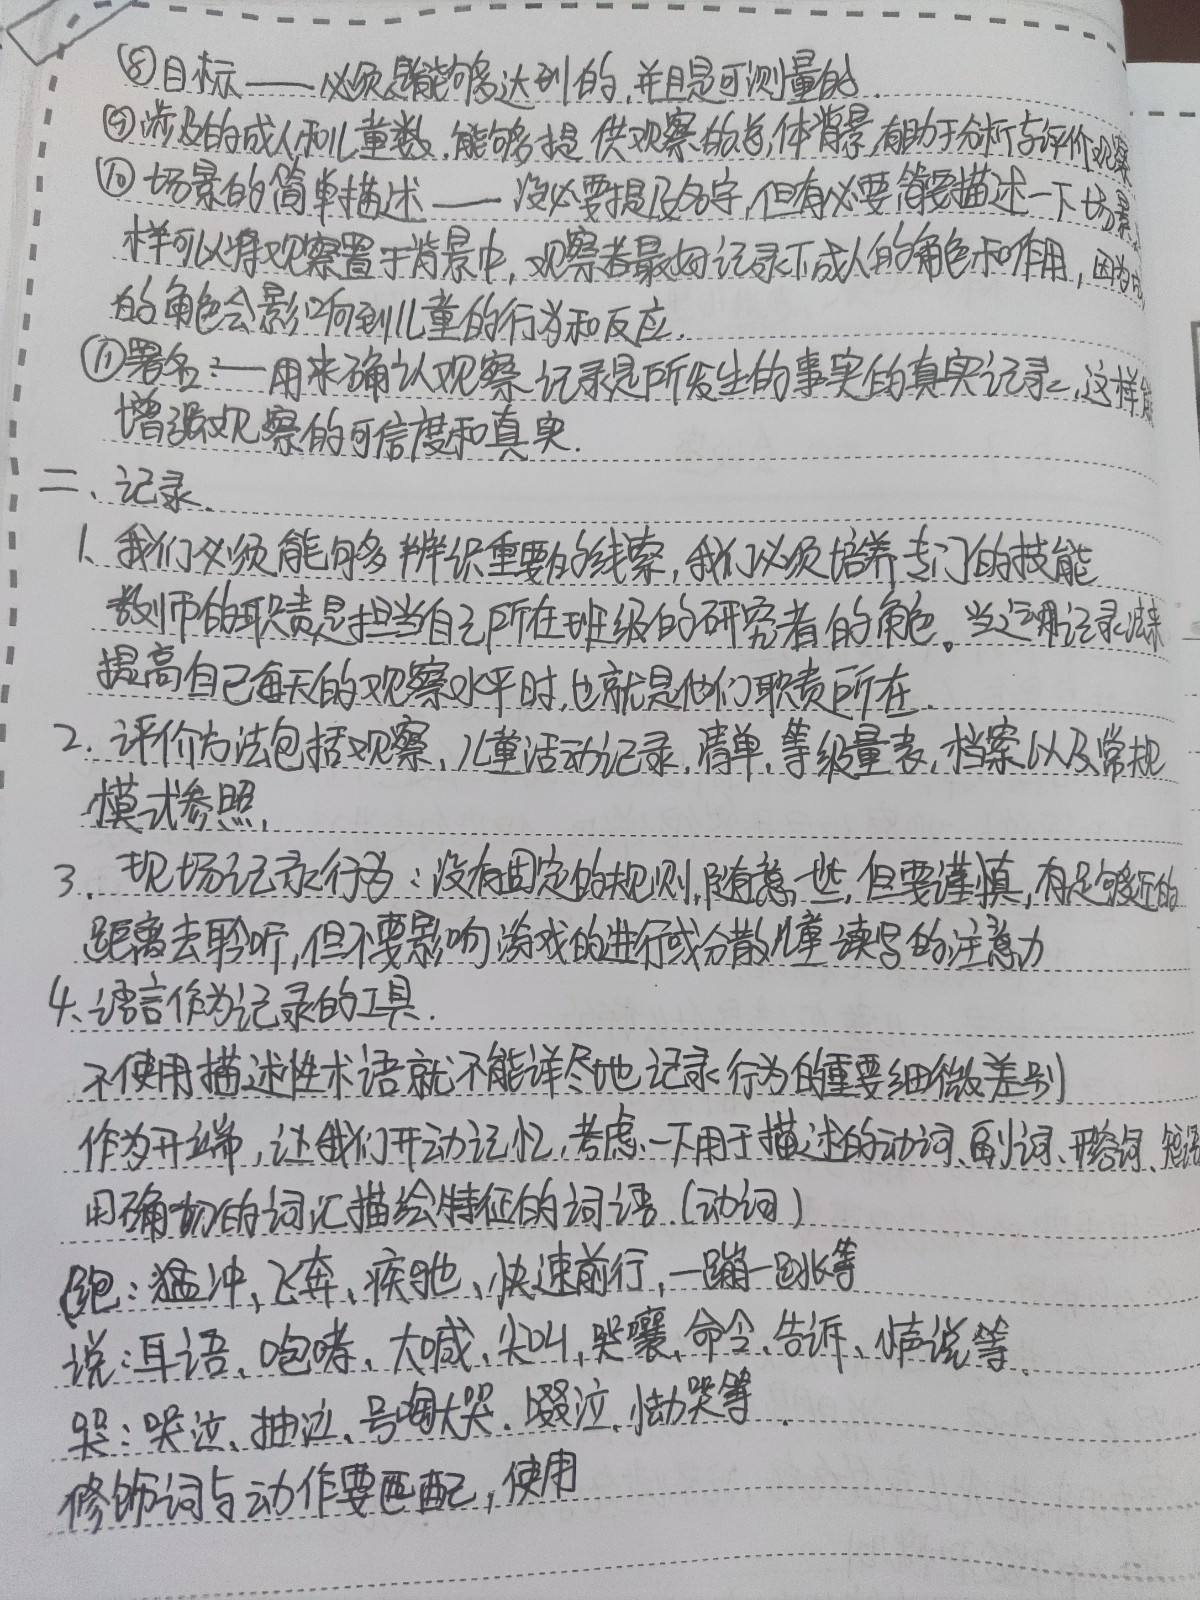 ⑧目标——必须是能够达到的,并且是可测量的.
⑨涉及的成人和儿童数,能够提供观察的总体背景,有助于分析与评价观察
⑩场景的简单描述——没必要提及名字,但有必要简要描述一下场景,
样可以将观察置于背景中,观察者最好记录下成人的角色和作用,因为
的角色会影响到儿童的行为和反应.
⑪署名:——用来确认观察记录是所发生的事实的真实记录,这样能
增强观察的可信度和真实.
二、记录.
1、我们必须能够辨识重要的线索,我们必须培养专门的技能
教师的职责是担当自己所在班级的研究者的角色。当运用记录法来
提高自己每天的观察水平时,也就是他们职责所在.
2.评价方法包括观察、儿童活动记录,清单、等级量表,档案以及常规
模式参照,
3.现场记录行为:没有固定的规则,随意一些,但要谨慎,有足够近的
距离去聆听,但不要影响游戏的进行或分散儿童读写的注意力
4、语言作为记录的工具.
不使用描述性术语就不能详尽地记录行为的重要细微差别
作为开端,让我们开动记忆,考虑一下用于描述的动词、副词、形容词、短语
用确切的词汇描绘特征的词语.(动词)
跑:猛冲、飞奔、疾驰、快速前行,一蹦一跳等
说:耳语、咆哮、大喊、尖叫,哭嚷、命令、告诉、小声说等.
哭:哭泣、抽泣、号啕大哭、啜泣、恸哭等.
修饰词与动作要匹配,使用